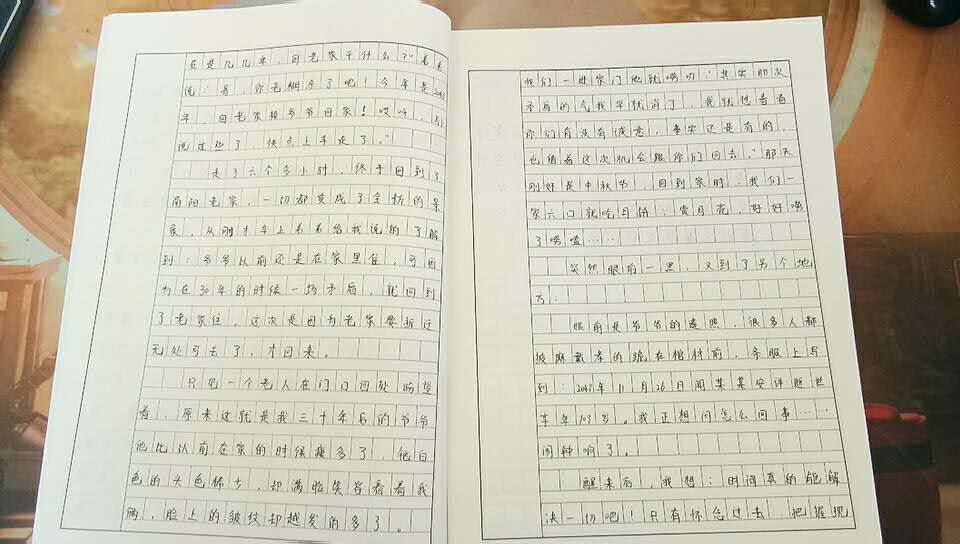 在是几几年，回老家干什么？”弟弟
说：“哥，你老糊涂了吧！今年是2045
年，回老家接爷爷回家！哎呀，别
说这些了，快点上车走了。”
走了六个多小时，终于回到了
南阳老家，一切都变成了全新的景
象，从刚才车上弟弟给我说的了解
到：爷爷以前还是在家里住，可因
为在30年的时候一场矛盾，就回到
了老家住，这次是因为老家要拆迁
无处可去了，才回来。
只见一个老人在门口四处盼望
着，原来这就是我三十年后的爷爷
他比以前在家的时候瘦多了，他白
色的头色稀少，却满脸笑容看着我
俩，脸上的皱纹却越发的多了。
他们一进家门他就唠叨：“其实那次
矛盾的气我早就消了，我就想看看
你们有没有诚意，事实还是有的，
也借着这次机会跟你们回去。”那天
刚好是中秋节，回到家时，我们一
家六口就吃月饼；赏月亮，好好唠
了唠嗑……
突然眼前一黑，又到了另个地
方。
眼前是爷爷的遗照，很多人都
披麻戴孝的跪在棺材前，条服上写
到：年11月26日闫某某安详逝世
享年103岁。我正想问怎么回事……
闹钟响了。
醒来后，我想：时间真的能解
决一切吧！只有怀念过去，把握现